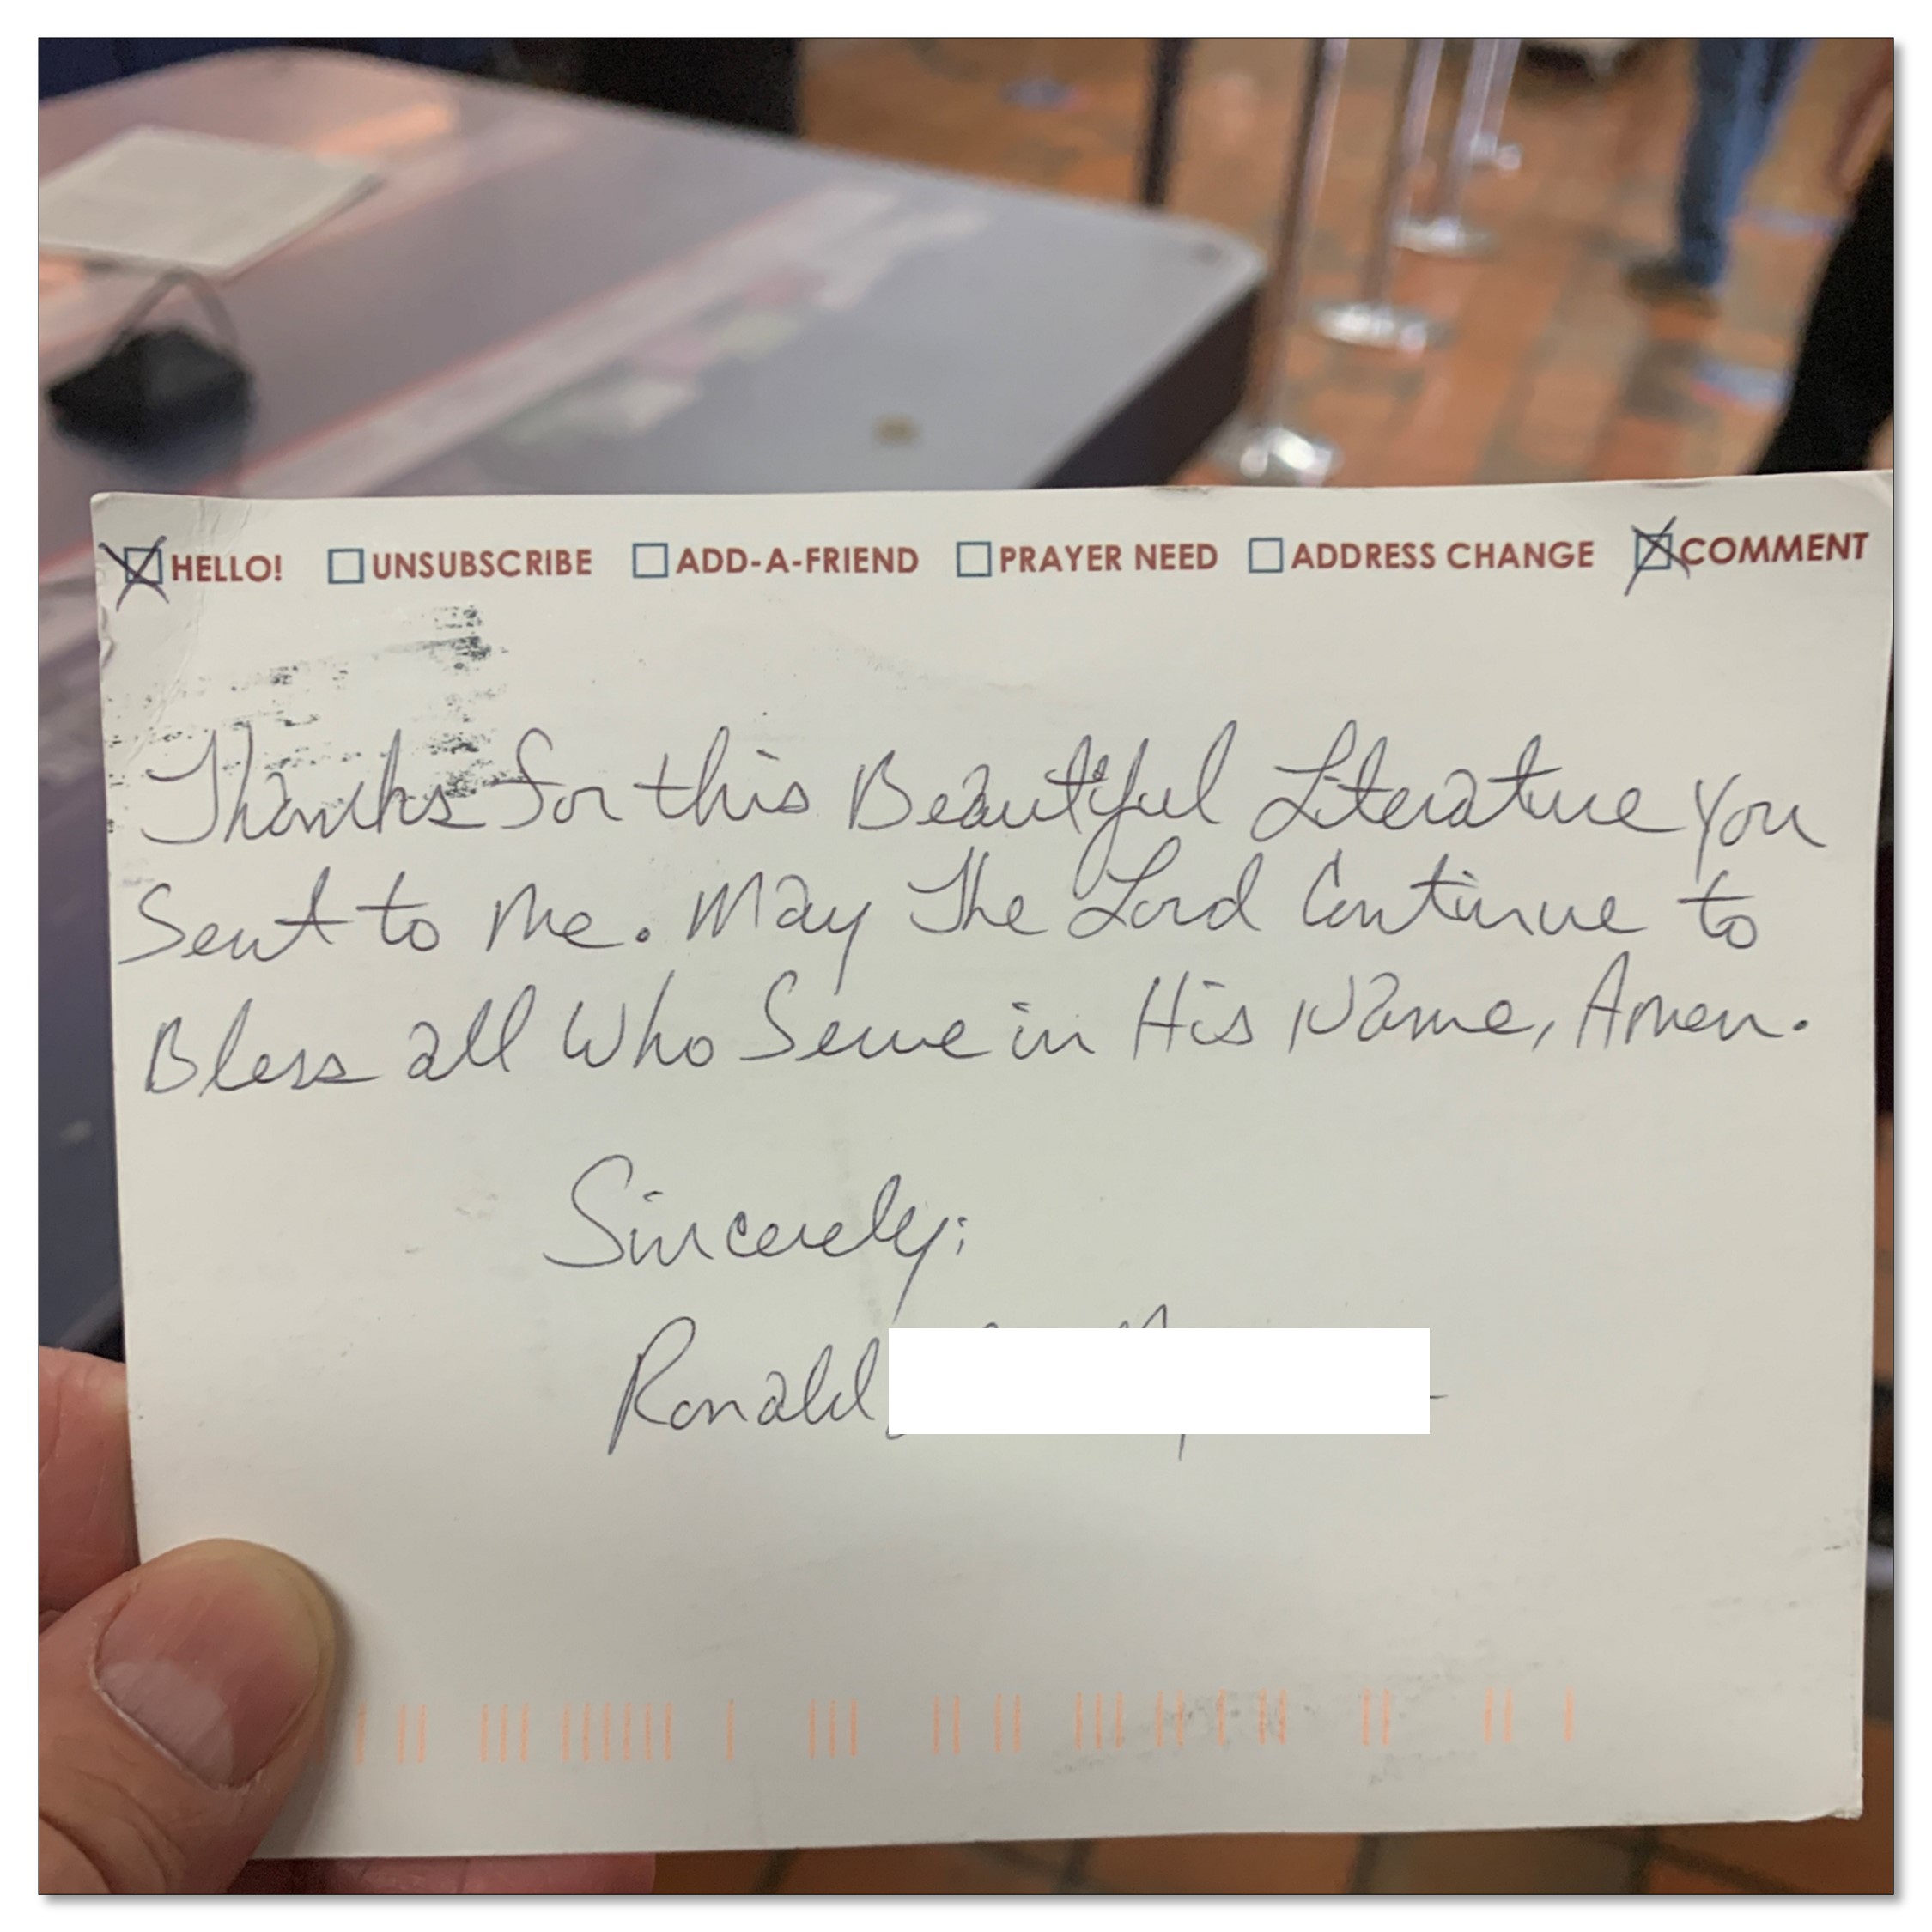 HELLO! UNSUBSCRIBE ADD-A-FRIEND PRAYER NEED ADDRESS CHANGE COMMENT
Thanks for this Beautiful Literature You
Sent to Me. May The Lord Continue to
Bless all Who Serve in His Name, Amen.
Sincerely;
Ronald